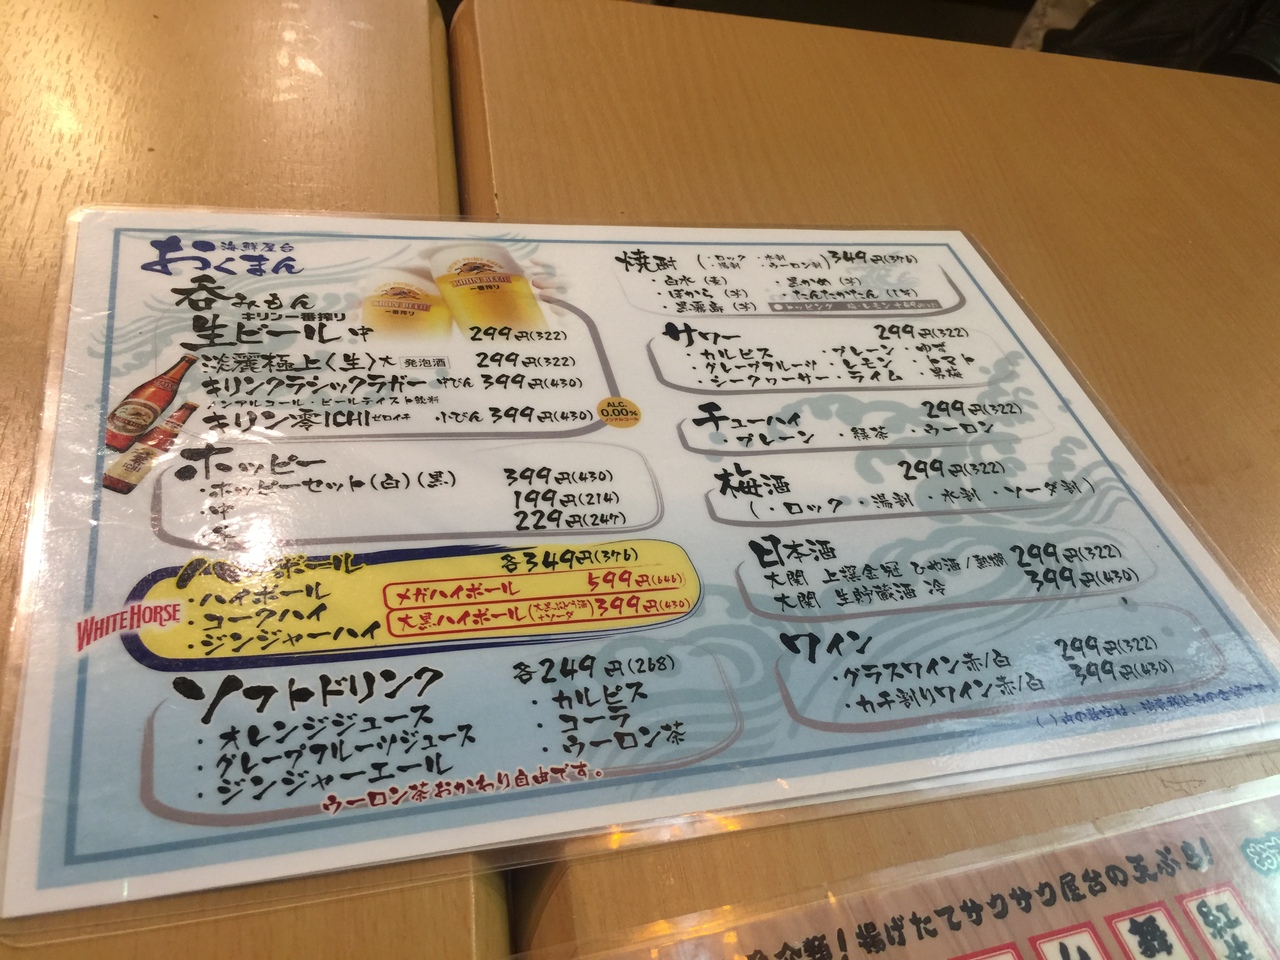 海鮮屋台
おくまん
呑みもん
キリン一番搾り
生ビール 中 299円(322)
淡麗極上〈生〉大 発泡酒 299円(322)
キリンクラシックラガー 中びん 399円(430)
ノンアルコール・ビールテイスト飲料
キリン零ICHI ゼロイチ 小びん 399円(430)
ALC. 0.00% ノンアルコール
KIRIN BEER
一番搾り
KIRIN BEER
一番搾り
ホッピー
・ホッピーセット(白)(黒) 399円(430)
・中 199円(214)
229円(247)
ボール 各349円(376)
・ハイボール
・コークハイ
・ジンジャーハイ
メガハイボール 599円(646)
大黒ハイボール 399円(430)
WHITE HORSE
ソフトドリンク 各249円(268)
・オレンジジュース
・グレープフルーツジュース
・ジンジャーエール
・カルピス
・コーラ
・ウーロン茶
ウーロン茶おかわり自由です。
焼酎 (・ロック ・水割 ・湯割 ・ウーロン割) 349円(376)
・白水(麦) ・黒かめ(芋)
・ほから(芋) ・たんたかたん(しそ)
・黒霧島(芋)
サワー 299円(322)
・カルピス ・プレーン ・ゆず
・グレープフルーツ ・レモン ・トマト
・シークヮーサー ・ライム ・男梅
チューハイ 299円(322)
・プレーン ・緑茶 ・ウーロン
梅酒 299円(322)
(・ロック ・湯割 ・水割 ・ソーダ割)
日本酒
大関 上撰金冠 ひや酒/熱燗 299円(322)
大関 生貯蔵酒 冷 399円(430)
ワイン
・グラスワイン赤/白 299円(322)
・カチ割りワイン赤/白 399円(430)
揚げたてサクサク屋台の天ぷら!